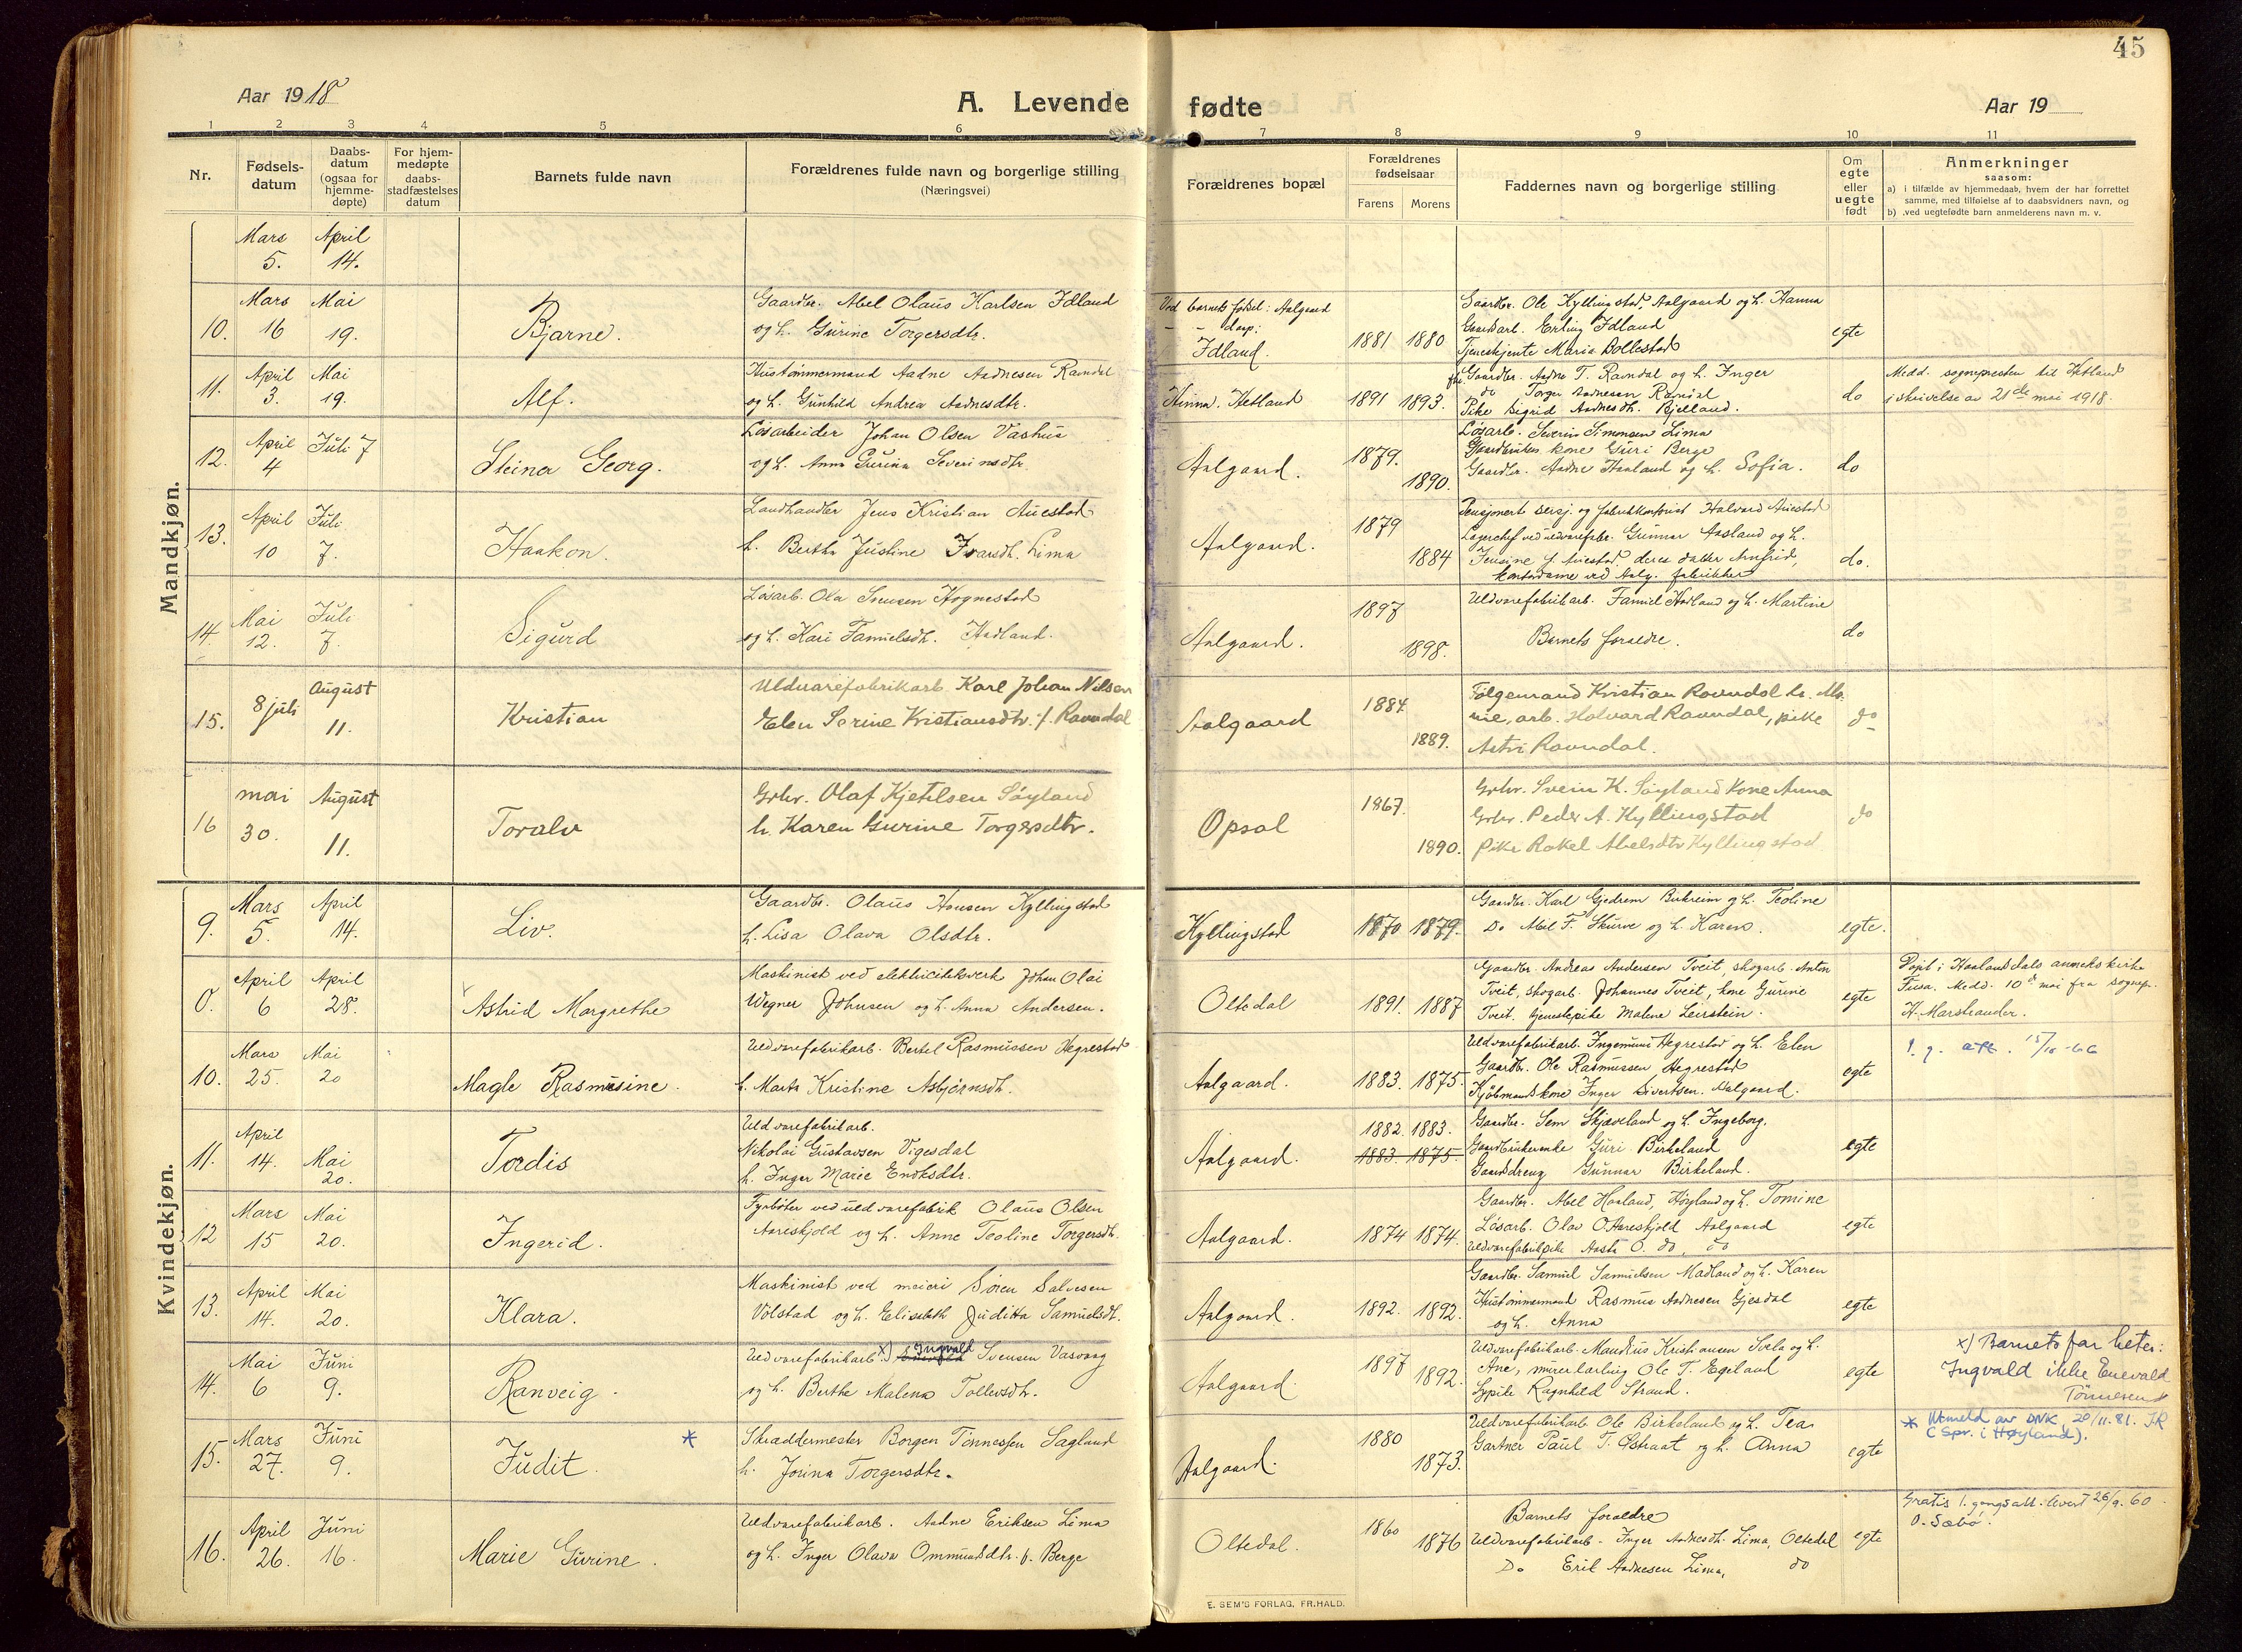 45
Aar 1918
A. Levende fødte
Aar 19
1 2 3 4 5 6 7 8 9 10 11
Nr.
Fødsels-
datum
Daabs-
datum
(ogsaa for
hjemme-
døpte)
For hjem-
medøpte
daabs-
stadfæstelses
datum
Barnets fulde navn
Forældrenes fulde navn og borgerlige stilling
(Næringsvei)
Forældrenes bopæl
Forældrenes
fødselsaar
Farens Morens
Faddernes navn og borgerlige stilling
Om
egte
eller
uegte
født
Anmerkninger
saasom:
a) i tilfælde av hjemmedaab, hvem der har forrettet
samme, med tilføielse af to daabsvidners navn, og
b) ved uegtefødte barn anmelderens navn m. v.
Mandkjøn.
Mars April
5. 14.
10. Mars 16 Mai 19. Bjarne.
Gaardbr. Abel Olaus Karlsen Idland
og h. Gurine Torgersdtr.
Ved barnets fødsel: Aalgaard
— — daap:
Idland.
1881 1880
Gaardbr. Ole Kyllingstad, Aalgaard og h. Hanna
Gaardarb. Erling Idland
Tjenestejente Maria Bollestad
egte
11. April 3. Mai 19. Alf.
Hustømmermand Aadne Aadnesen Ravndal
og h. Gunhild Andrea Aadnesdtr.
Hinna. Hetland
1891 1893.
Gaardbr. Aadne T. Ravndal og h. Inger
do Torger Aadnesen Ravndal
Pike Sigrid Aadnesdh. Bjelland.
do
Medd. sognepresten til Hetland
i skrivelse av 21de mai 1918.
12. April 4 Juli 7 Steinar Georg.
Løsarbeider Johan Olsen Vashus
og h. Anna Gurina Severinsdtr.
Aalgaard.
1879. 1890.
Løsarb. Severin Simonsen Lima
Gaardbrukers kone Guri Berge
Gaardbr. Aadne Haaland og h. Sofia.
do
13. April 10 Juli 7. Haakon.
Landhandler Jens Kristian Auestad
h. Bertha Justine Ivarsdh. Lima
Aalgaard.
1879 1884
Pensjonert sersj. og fabrikkontorist Halvard Auestad
Lagerchef ved uldvarefabr. Gunnar Aasland og h.
Jensine f. Auestad, deres datter Arnfrid,
kontordame ved Aalg. fabrikker
do.
14. Mai 12. Juli 7. Sigurd
Løsarb. Ola Svensen Hognestad
og h. Kari Tamielsdh. Hadland.
Aalgaard.
1897 1898.
Uldvarefabrikarb. Tamiel Hadland og h. Martine
Barnets foraedre.
do
15. 8 juli August 11. Kristian
Uldvarefabrikarb. Karl Johan Nilsen
Elen Serine Kristiansdtr. f. Ravndal
Aalgaard
1884. 1889.
Følgemand Kristian Ravndal h. Ma-
rie, arb. Halvard Ravndal, pike
Astri Ravndal.
do
16 mai 30. August 11. Toralv
Grbr. Olaf Kjetilsen Søyland
h. Karen Gurine Torgersdtr.
Opsal
1867. 1890.
Grbr. Svein K. Søyland kone Anna
Grbr. Peder A. Kyllingstad
pike Rakel Abelsdtr Kyllingstad
do
Kvindekjøn.
9. Mars 5. April 14. Liv.
Gaardbr. Olaus Hansen Kyllingstad
h. Lisa Olava Olsdtr.
Kyllingstad
1870 1879.
Gaardbr. Karl Gjedrem Birkreim og h. Teoline
Do Abel F. Skurve og h. Karen.
egte.
0. April 6 April 28. Astrid Margrethe
Maskinist ved elektricitetsverk Johan Olai
Wegner Johnsen og h. Anna Andersen.
Oltedal
1891. 1887
Gaardbr. Andreas Andersen Tveit, skogarb. Anton
Tveit, skogarb. Johannes Tveit, kone Gurine
Tveit, tjenestepike Malene Leirstein.
egte
Døpt i Haalandsdals annekskirke
Fusa. Medd. 10de mai fra sognepr.
H. Marstrander.
10. Mars 25. Mai 20 Magle Rasmusine.
Uldvarefabrikarb. Bertel Rasmussen Hegrestad
h. Marta Kristine Asbjørnsdh.
Aalgaard.
1883. 1875.
Uldvarefabrikarb. Ingemund Hegrestad og h. Elen
Gaardb. Ole Rasmussen Hegrestad
Kjøbmandskone Inger Sivertsen. Aalgaard.
egte
1. g. att. 15/10-66
11. April 14. Mai 20. Tordis
Uldvarefabrikarb.
Nikolai Gustavsen Vigesdal
h. Inger Marie Endresdtr.
Aalgaard.
1882. 1883.
1883. 1875.
Gaardbr. Sem Skjæveland og h. Ingeborg.
Gaardbrukerenke Guri Birkeland
Gaardsdreng Gunnar Birkeland.
egte
12 Mars 15 Mai 20. Ingerid.
Fyrbøter ved uldvarefabrik Olaus Olsen
Aareskjold og h. Anne Teoline Torgersdh.
Aalgaard.
1874 1874.
Gaardbr. Abel Haaland, Høyland og h. Tomine
Løsarb. Olav O. Aareskjold Aalgaard
Uldvarefabrikpike Aasta O. do, do
egte
13. April 14. Mai 20. Klara.
Maskinist ved meieri Sören Salvesen
Volstad og h. Elisabeth Juditta Samuelsdt.
Aalgaard.
1892. 1892.
Gaardbr. Samuel Samuelsen Madland og h. Karen
Hustømmermand Rasmus Aadnesen Gjesdal
og h. Anna
egte
14. Mai 6 Juni 9. Ranveig.
Uldvarefabrikarb. x) Ingvald Svensen Vasvaag
og h. Berthe Malene Tollevsdh.
Aalgaard.
1897 1892.
Uldvarefabrikarb. Maudius Kristiansen Svela og h.
Ane, murerlærling Ole T. Egeland
Sypike Ragnhild Strand.
egte
x) Barnets far heter:
Ingvald ikke Enevald
Tönnesen
15. Mars 27. Juni 9. Judit. *
Skræddermester Borgen Tönnessen Sagland
h. Jorina Torgersdtr.
Aalgaard.
1880 1873.
Uldvarefabrikarb. Ole Birkeland og h. Tea
Gartner Paul T. Østraat og h. Anna
egte
* Utmeld av DNK, 20/11.81. JR
(Spr. i Høyland).
16. April 26. Juni 16. Marie Gurine.
Uldvarefabrikarb. Aadne Eriksen Lima
og h. Inger Olava Ommundsdtr. f. Berge
Oltedal.
1860 1876
Barnets foraeldre
Uldvarefabrikarb. Inger Aadnesdh. Lima, Oltedal
Do Erik Aadnesen Lima, do
egte
Gratis 1. gangsatt. levert 26/9. 60.
O. Sæbø.
E. SEM'S FORLAG, FR.HALD.